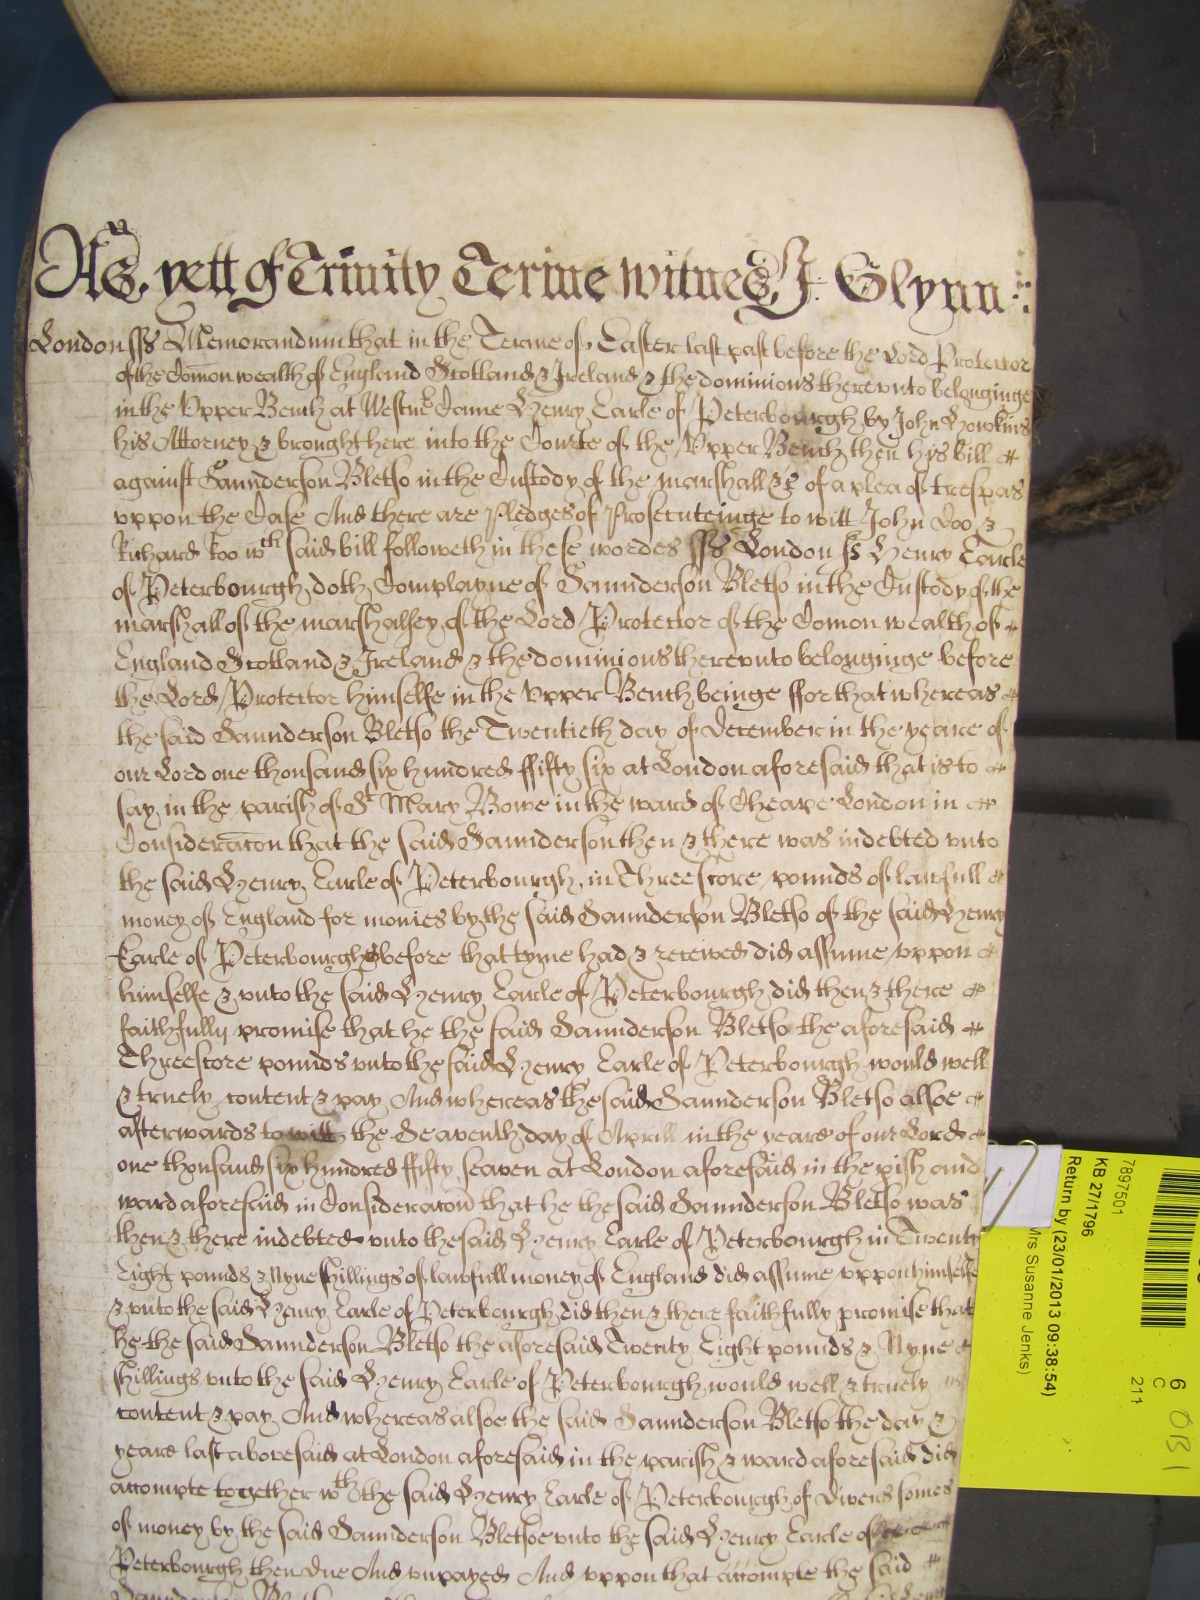 As yett of Trinity Terme witnes J: Glynn
London ss Memorandum that in the Terme of Easter last past before the Lord Protector
of the Comon wealth of England Scotland & Ireland & the dominions therevnto belonginge
in the Vpper Bench at Westmr Came Henry Earle of Peterbourgh by John Howkins
his Attorney & brought here into the Courte of the Vpper Bench then his bill
against Saunderson Bletso in the Custody of the marshall &c of a plea of trespas
vppon the Case And there are Pledges of Prosecuteinge to witt John Doo &
Richard Roo wch said bill followeth in these wordes ss London ss Henry Earle
of Peterbourgh doth Complayne of Saunderson Bletso in the Custody of the
marshall of the marshalsey of the Lord Protector of the Comon wealth of
England Scotland & Ireland & the dominions therevnto belonginge before
the Lord Protector himselfe in the Vpper Bench beinge ffor that whereas
the said Saunderson Bletso the Twentieth day of December in the yeare of
our Lord one thousand six hundred ffifty six at London aforesaid that is to
say in the parish of St Mary Bowe in the ward of Cheape London in
Consideracon that the said Saunderson then & there was indebted vnto
the said Henry Earle of Peterbourgh in Threescore pounds of lawfull
money of England for monies by the said Saunderson Bletso of the said Henry
Earle of Peterbourgh before that tyme had & received did assume vppon
himselfe & vnto the said Henry Earle of Peterbourgh did then & there
faithfully promise that he the said Saunderson Bletso the aforesaid
Threescore pounds vnto the said Henry Earle of Peterbourgh would well
& truely content & pay And whereas the said Saunderson Bletso alsoe
afterwards to witt the Seaventh day of Aprill in the yeare of our Lord
one thousand six hundred ffifty seaven at London aforesaid in the pish and
ward aforesaid in Consideracon that he the said Saunderson Bletso was
then & there indebted vnto the said Henry Earle of Peterbourgh in Twenty
Eight pounds & Nyne shillings of lawfull money of England did assume vppon himselfe
& vnto the said Henry Earle of Peterbourgh did then & there faithfully promise that
he the said Saunderson Bletso the aforesaid Twenty Eight pounds & Nyne
shillings vnto the said Henry Earle of Peterbourgh would well & truely
content & pay And whereas alsoe the said Saunderson Bletso the day &
yeare last abovesaid at London aforesaid in the parish & ward aforesaid did
accompte together wth the said Henry Earle of Peterbourgh of divers somes
of money by the said Saunderson Bletsoe vnto the said Henry Earle of
Peterbourgh then due And vnpayed And vppon that accompte the said
7897501
KB 27/1796
Return by (23/01/2013 09:38:54)
Mrs Susanne Jenks)
6
C
211